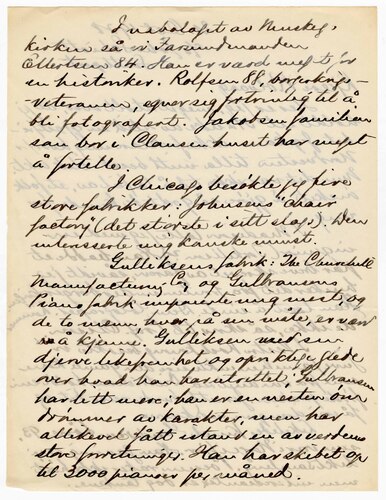 I nabolaget av Muskeg.
kirken så vi Farmmanden
Ellertsen 84. Han er værd meget for
en historiker. Rolfsen 88, borgerkrigs-
veteranen, egner sig fortrinlig til å
bli fotografert. Jakobsen familien
som bor i Clausen huset har meget
å fortelle.
I Chicago besøkte jeg fire
store fabrikker: Johnsens "chair
factory" (det største i sitt slags). Den
interesserte mig kanske minst.
Gulliksens fabrik: The Churchill
Manufacturing Co, og Gulbransons
Piano fabrik imponerte mig mest, og
de to menn, hver, på sin måte, er værd
å kjenne. Gulliksen med sin
djerve likefremhet og opriktige glede
over hvad han har utrettet, Gulbransen
har lett mere; han er en nesten om
drømmer av karakter, men har
allikevel fått istand en av verdens
store forretninger. Han har skibet op
til 3000 pianoer per måned.